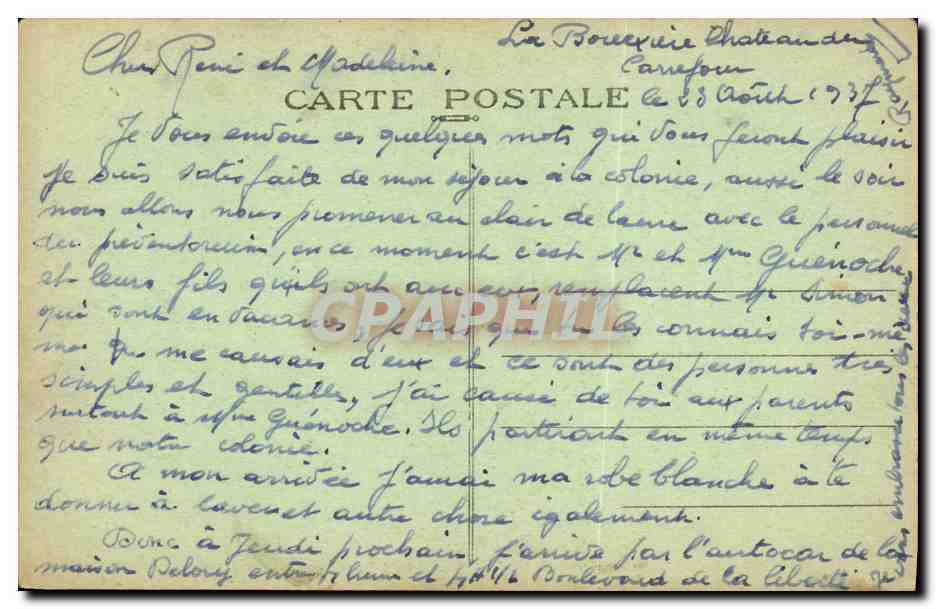 La Bouëxière Chateau du
Carrefour
Cher René et Madeleine.
CARTE POSTALE
le 23 Août 1937
Je vous envoie ces quelques mots qui vous feront plaisir
je suis satisfaite de mon séjour à la colonie, aussi le soir
nous allons nous promener au clair de lune avec le personnel
du préventorium, en ce moment c'est Mr et Mme Guénoche
et leurs fils qu'ils ont avec eux, remplacent Mr Simon
qui sont en vacances, je sais que tu les connais toi-mê
me tu me causais d'eux et ce sont des personnes très
simples et gentilles, j'ai causé de toi aux parents
surtout à Mme Guénoche. Ils partiront en même temps
que notre colonie.
A mon arrivée j'aurai ma robe blanche à te
donner à laver et autre chose également.
Donc à Jeudi prochain, j'arrive par l'autocar de la
maison Delory entre 7 heures et 7 H 1/2 Boulevard de la liberté Je
vous embrasse tous les deux
CPAPHIL